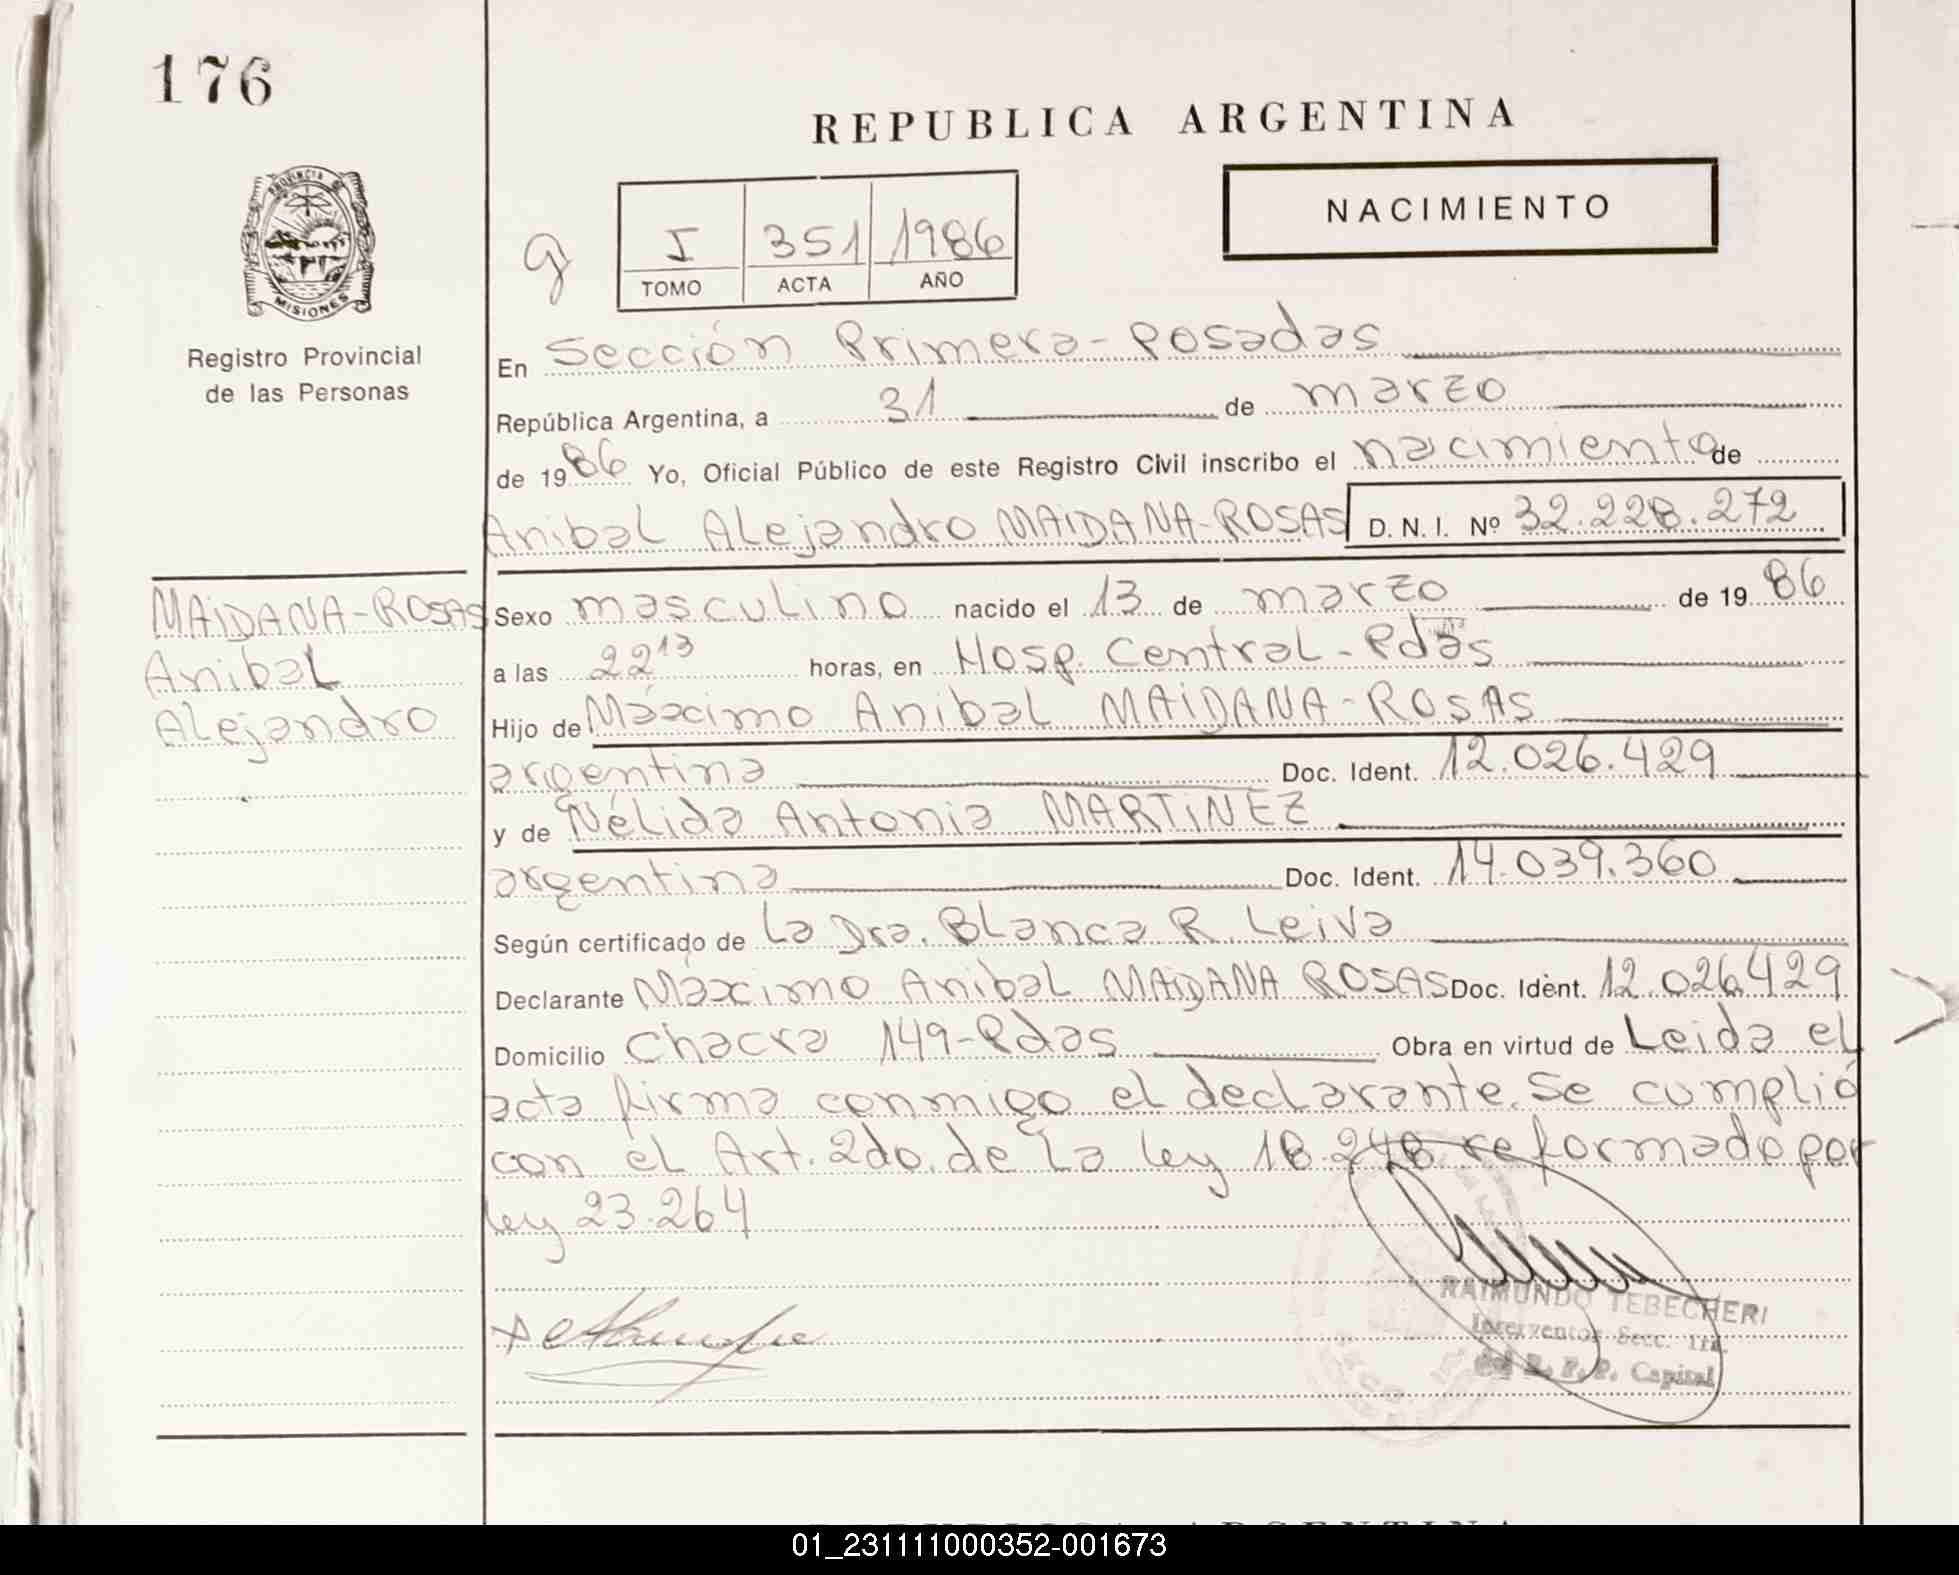 176
REPUBLICA ARGENTINA
PROVINCIA DE
MISIONES
Registro Provincial
de las Personas
NACIMIENTO
g I 351 1986
TOMO ACTA AÑO
En Sección Primera - Posadas
República Argentina, a 31 de marzo
de 1986 Yo, Oficial Público de este Registro Civil inscribo el nacimiento de
Anibal Alejandro MAIDANA-ROSAS D. N. I. Nº 32.228.272
MAIDANA-ROSAS
Anibal
Alejandro
Sexo masculino nacido el 13 de marzo de 1986
a las 22 13 horas, en Hosp. Central - Pdas
Hijo de Máximo Anibal MAIDANA-ROSAS
argentina Doc. Ident. 12.026.429
y de Nélida Antonia MARTINEZ
argentina Doc. Ident. 14.039.360
Según certificado de La Dra. Blanca R Leiva
Declarante Máximo Anibal MAIDANA ROSAS Doc. Ident. 12.026429
Domicilio Chacra 149-Pdas Obra en virtud de Leida el
acta firma conmigo el declarante. Se cumplió
con el Art. 2do. de La ley 18.248 reformado por
ley 23.264
RAIMUNDO TEBECHERI
Interventor Secc. 1ra.
del R. P. P. Capital
REPUBLICA ARGENTINA
01_231111000352-001673